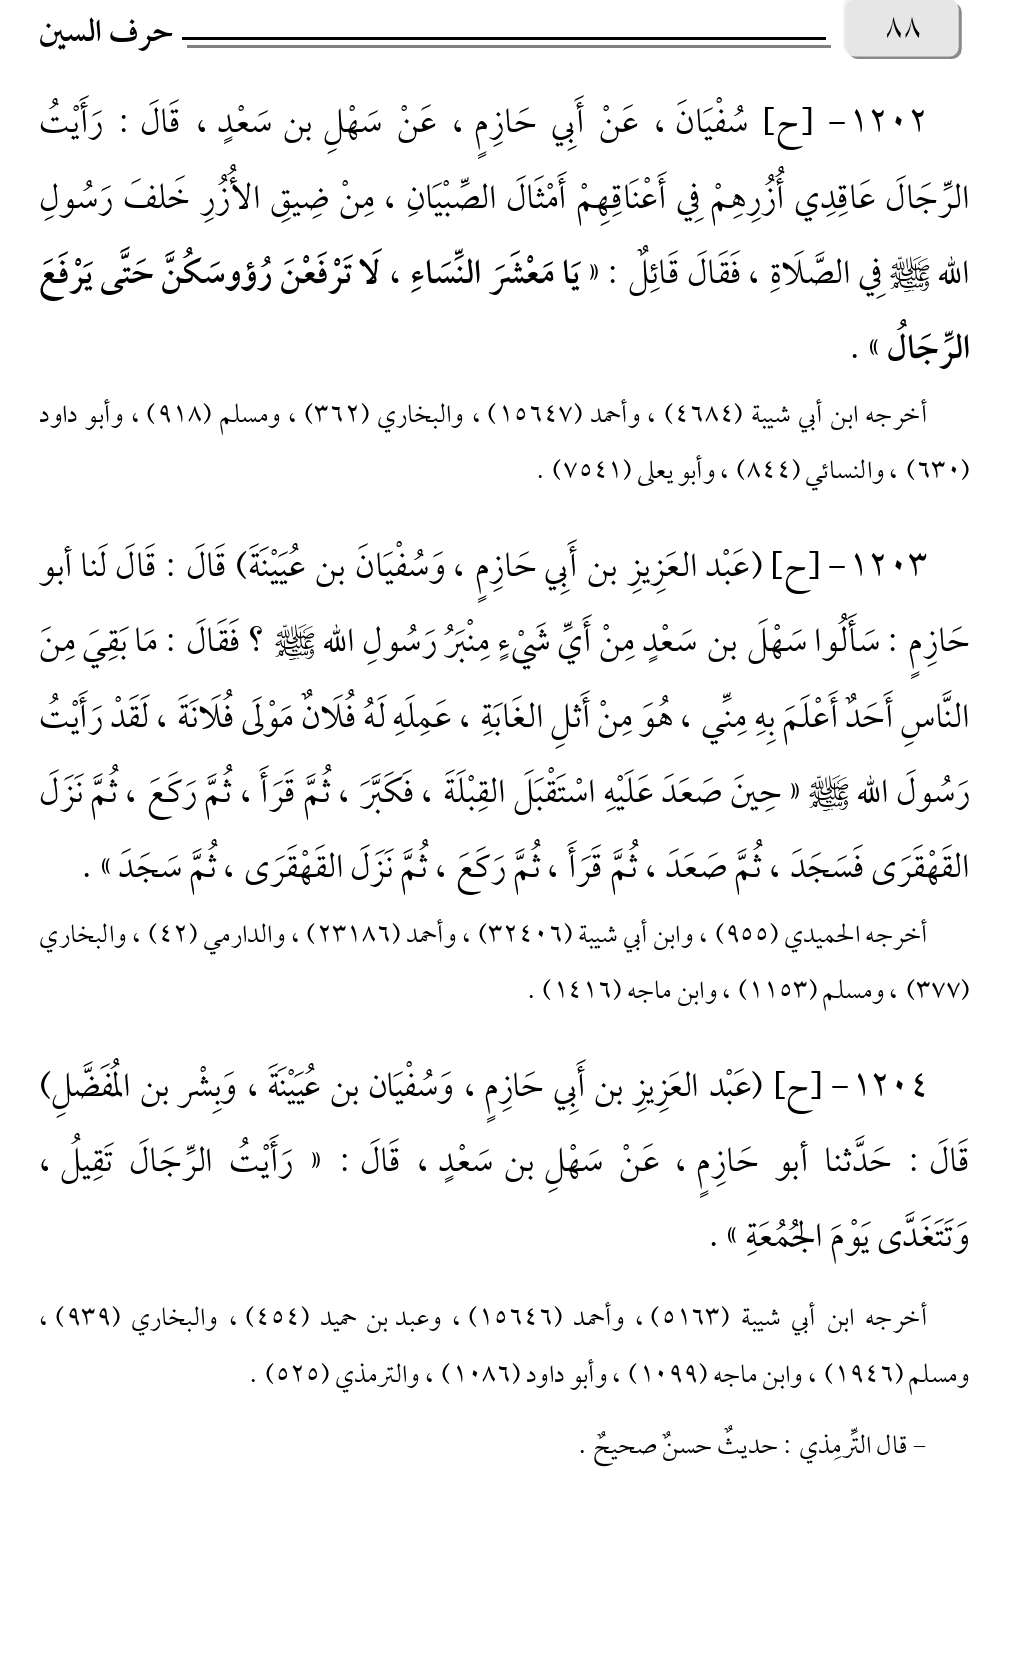 ٨٨ حرف السين
١٢٠٢- [ح] سُفْيَانَ ، عَنْ أَبِي حَازِمٍ ، عَنْ سَهْلِ بن سَعْدٍ ، قَالَ : رَأَيْتُ
الرِّجَالَ عَاقِدِي أُزُرِهِمْ فِي أَعْنَاقِهِمْ أَمْثَالَ الصِّبْيَانِ ، مِنْ ضِيقِ الأُزُرِ خَلفَ رَسُولِ
الله ﷺ فِي الصَّلَاةِ ، فَقَالَ قَائِلٌ : « يَا مَعْشَرَ النِّسَاءِ ، لَا تَرْفَعْنَ رُؤوسَكُنَّ حَتَّى يَرْفَعَ
الرِّجَالُ » .
أخرجه ابن أبي شيبة (٤٦٨٤) ، وأحمد (١٥٦٤٧) ، والبخاري (٣٦٢) ، ومسلم (٩١٨) ، وأبو داود
(٦٣٠) ، والنسائي (٨٤٤) ، وأبو يعلى (٧٥٤١) .
١٢٠٣- [ح] (عَبْد العَزِيزِ بن أَبِي حَازِمٍ ، وَسُفْيَانَ بن عُيَيْنَةَ) قَالَ : قَالَ لَنا أبو
حَازِمٍ : سَأَلُوا سَهْلَ بن سَعْدٍ مِنْ أَيِّ شَيْءٍ مِنْبَرُ رَسُولِ الله ﷺ ؟ فَقَالَ : مَا بَقِيَ مِنَ
النَّاسِ أَحَدٌ أَعْلَمَ بِهِ مِنِّي ، هُوَ مِنْ أَثلِ الغَابَةِ ، عَمِلَهِ لَهُ فُلَانٌ مَوْلَى فُلَانَةَ ، لَقَدْ رَأَيْتُ
رَسُولَ الله ﷺ « حِينَ صَعَدَ عَلَيْهِ اسْتَقْبَلَ القِبْلَةَ ، فَكَبَّرَ ، ثُمَّ قَرَأَ ، ثُمَّ رَكَعَ ، ثُمَّ نَزَلَ
القَهْقَرَى فَسَجَدَ ، ثُمَّ صَعَدَ ، ثُمَّ قَرَأَ ، ثُمَّ رَكَعَ ، ثُمَّ نَزَلَ القَهْقَرَى ، ثُمَّ سَجَدَ » .
أخرجه الحميدي (٩٥٥) ، وابن أبي شيبة (٣٢٤٠٦) ، وأحمد (٢٣١٨٦) ، والدارمي (٤٢) ، والبخاري
(٣٧٧) ، ومسلم (١١٥٣) ، وابن ماجه (١٤١٦) .
١٢٠٤- [ح] (عَبْد العَزِيزِ بن أَبِي حَازِمٍ ، وَسُفْيَان بن عُيَيْنَةَ ، وَبِشْر بن المُفَضَّلِ)
قَالَ : حَدَّثنا أبو حَازِمٍ ، عَنْ سَهْلِ بن سَعْدٍ ، قَالَ : « رَأَيْتُ الرِّجَالَ تَقِيلُ ،
وَتَتَغَدَّى يَوْمَ الجُمُعَةِ » .
أخرجه ابن أبي شيبة (٥١٦٣) ، وأحمد (١٥٦٤٦) ، وعبد بن حميد (٤٥٤) ، والبخاري (٩٣٩) ،
ومسلم (١٩٤٦) ، وابن ماجه (١٠٩٩) ، وأبو داود (١٠٨٦) ، والترمذي (٥٢٥) .
- قال التِّرمِذي : حديثٌ حسنٌ صحيحٌ .